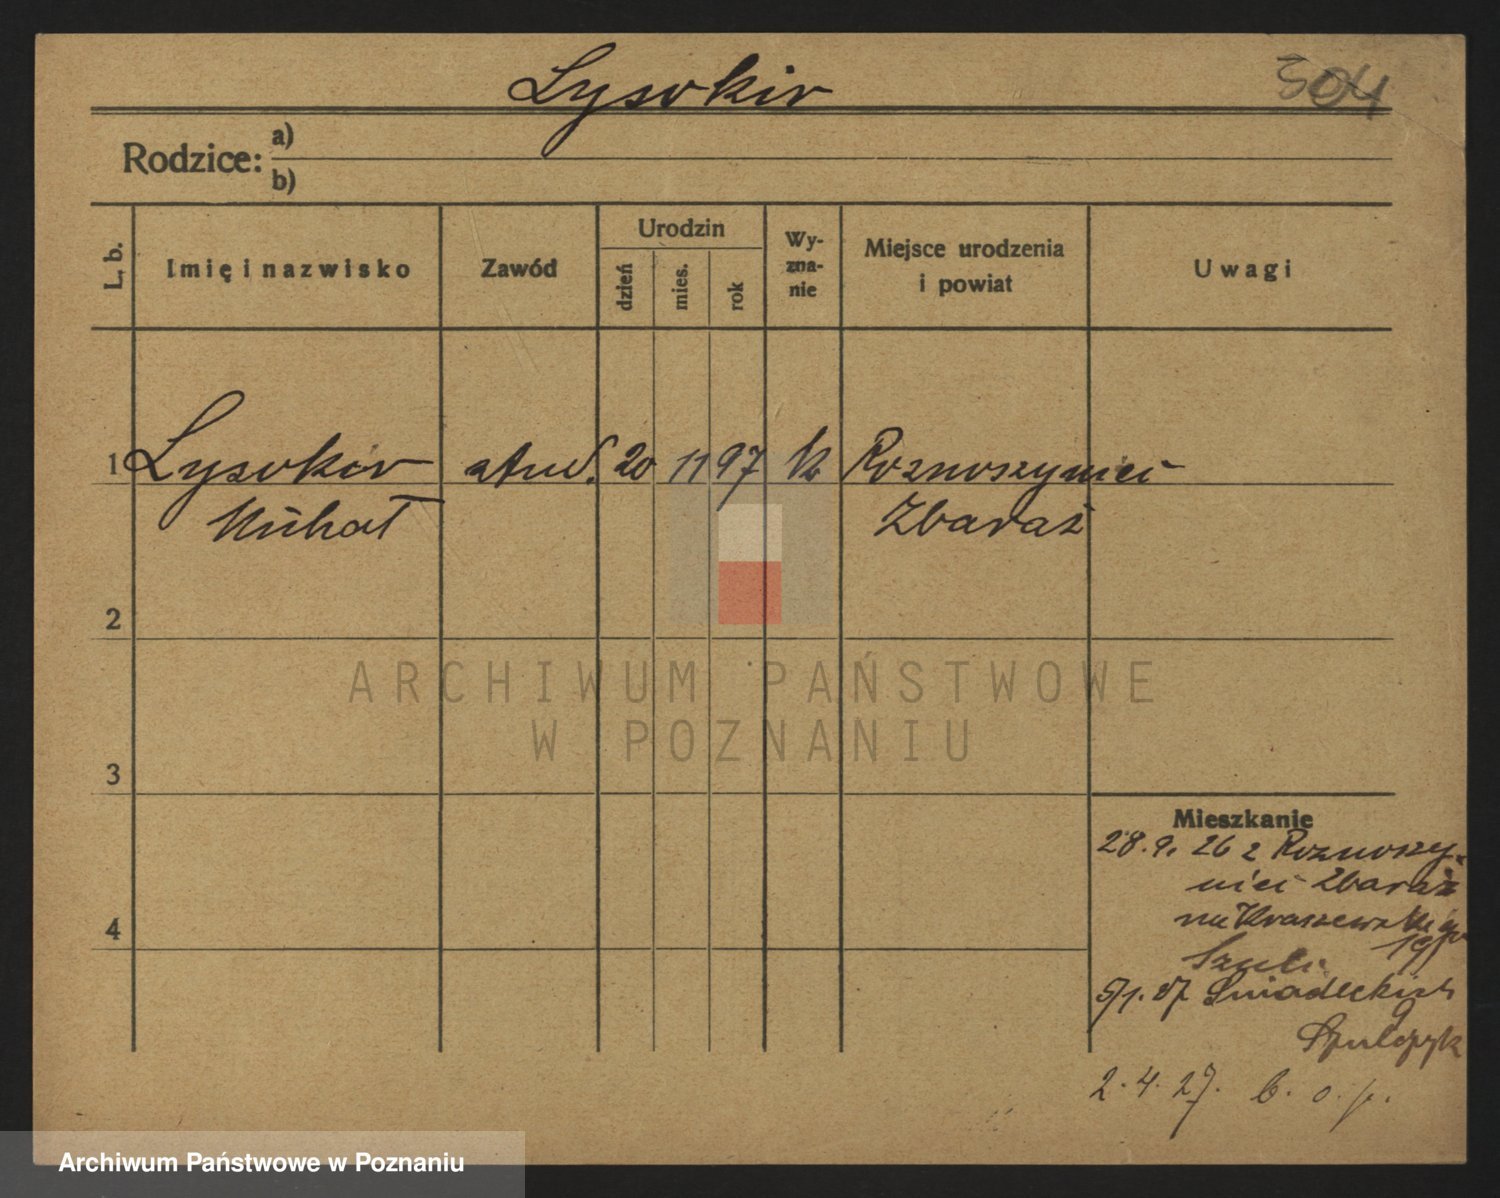 Lysokir
304
Rodzice: a)
b)
L. b.
Imię i nazwisko
Zawód
Urodzin
dzień
mies.
rok
Wy-
zna-
nie
Miejsce urodzenia
i powiat
Uwagi
1 Lysokir stud. 20 11 97 k Roznoszyńci
Michał Zbaraż
2
ARCHIWUM PAŃSTWOWE
W POZNANIU
3
Mieszkanie
28. 9. 26 z Roznoszy-
niec Zbaraż
na Kraszewskiego
19
Szulc
5/1. 27 Śniadeckich
9
4
2. 4. 27. b. o. p.
Archiwum Państwowe w Poznaniu